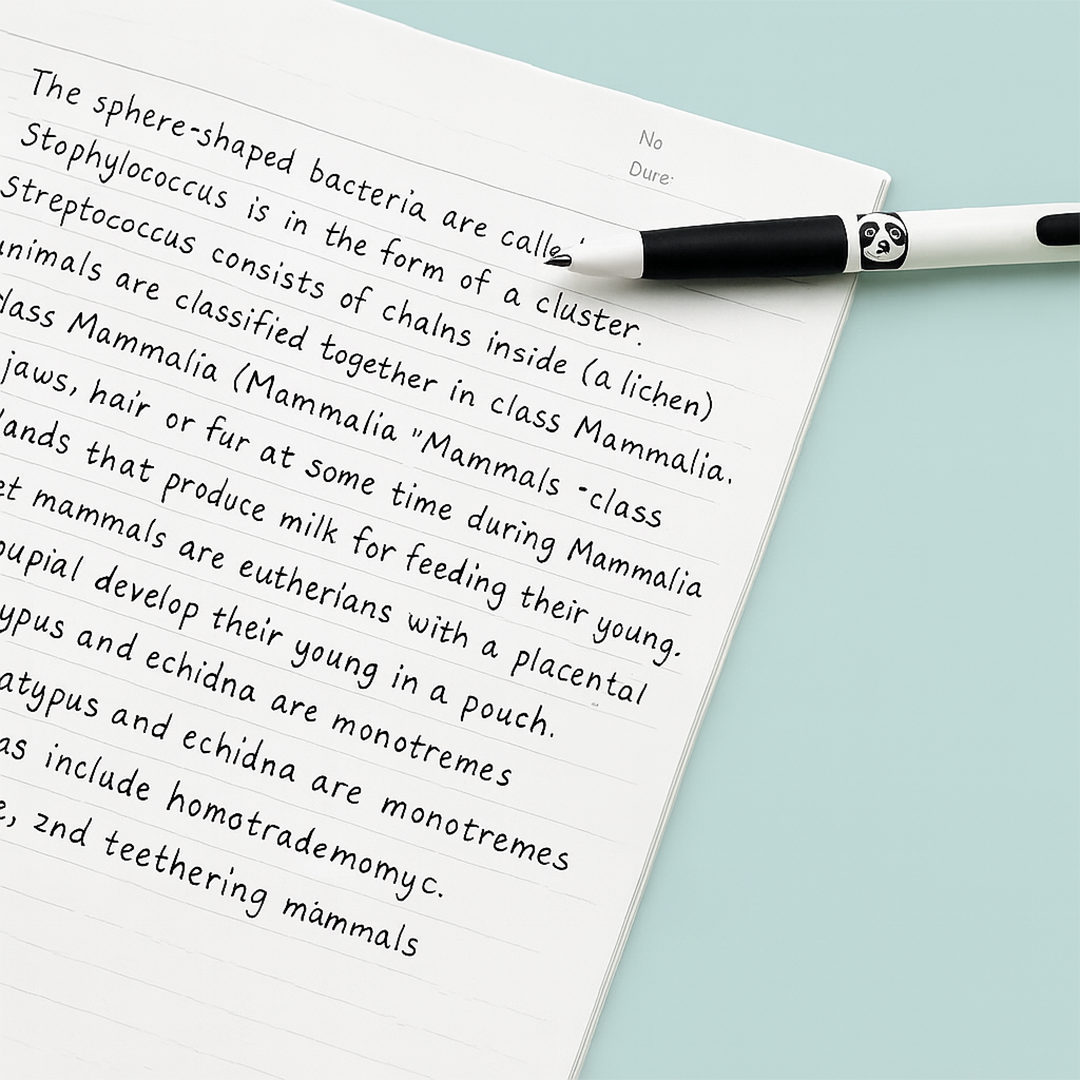 No
Dure:
The sphere-shaped bacteria are calle
Stophylococcus is in the form of a cluster.
Streptococcus consists of chalns inside (a lichen)
animals are classified together in class Mammalia.
class Mammalia (Mammalia "Mammals -class
jaws, hair or fur at some time during Mammalia
lands that produce milk for feeding their young.
et mammals are eutherians with a placental
oupial develop their young in a pouch.
ypus and echidna are monotremes
atypus and echidna are monotremes
as include homotrademomy c.
e, 2nd teethering mámmals